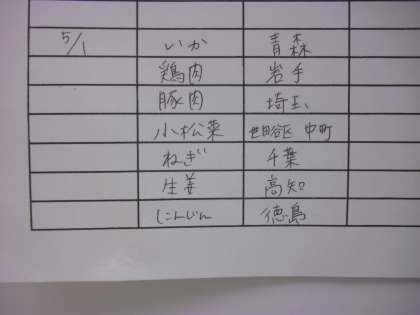 5/1 いか 青森
鶏肉 岩手
豚肉 埼玉
小松菜 世田谷区 中町
ねぎ 千葉
生姜 高知
にんじん 徳島